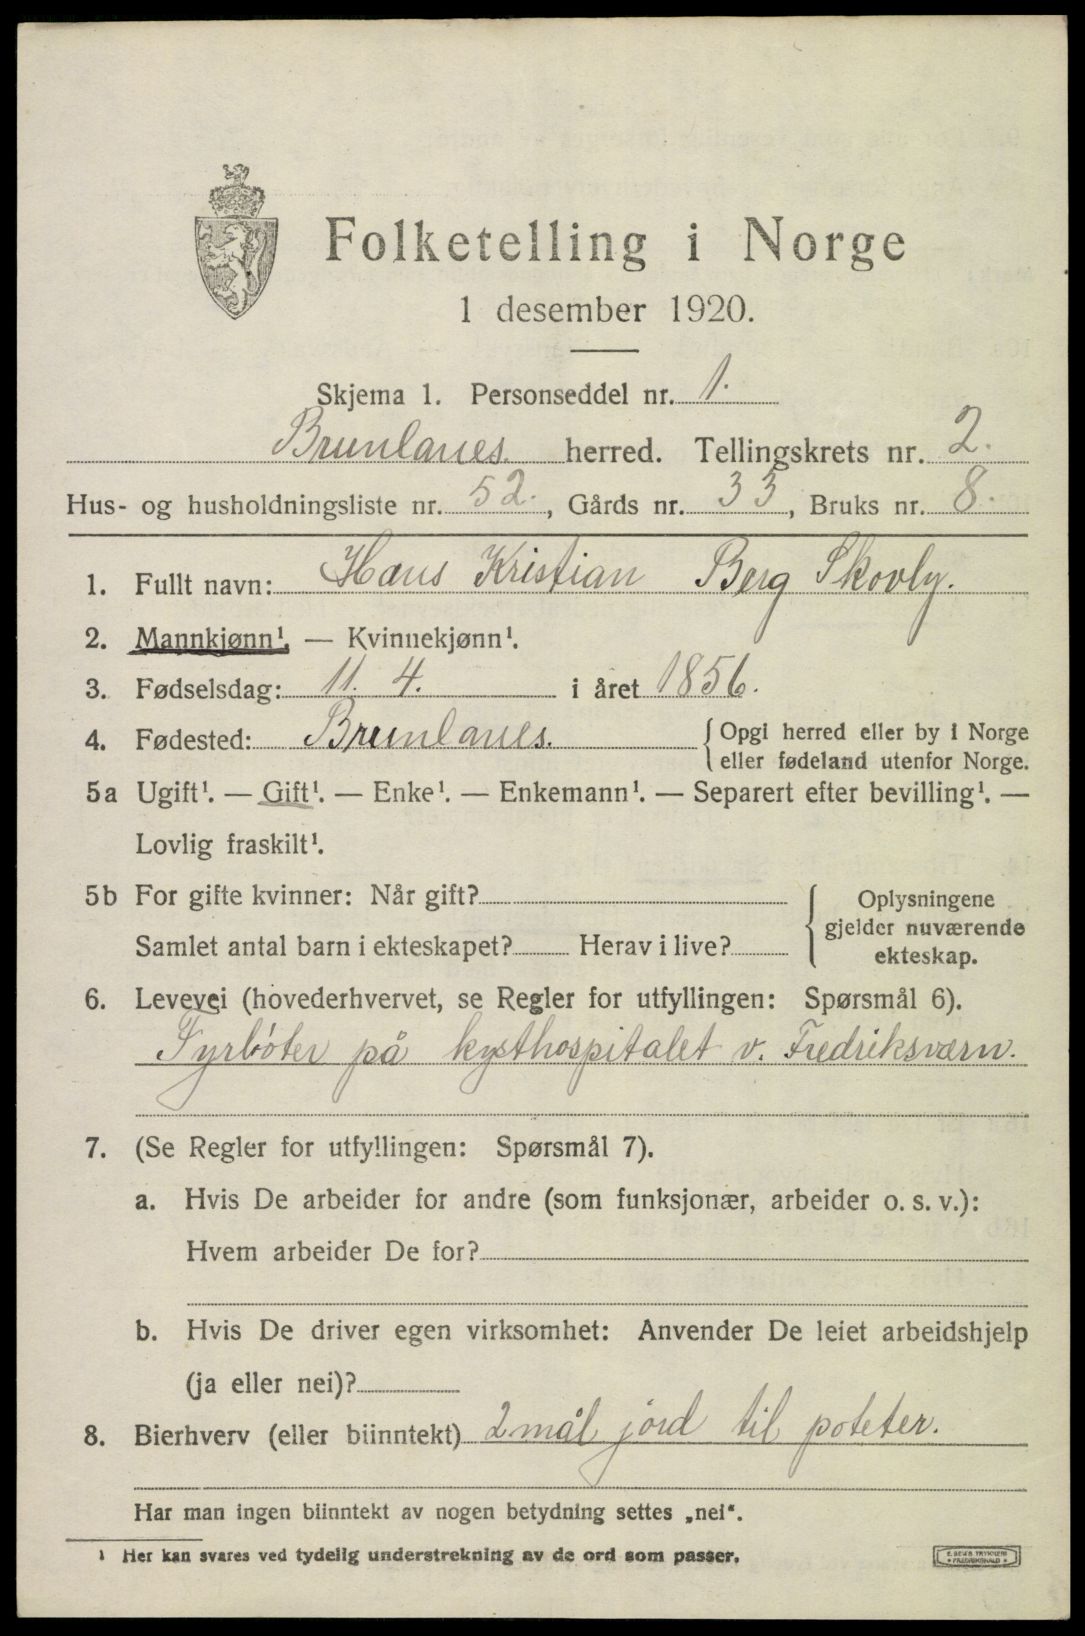 Folketelling i Norge
1 desember 1920.
Skjema 1. Personseddel nr. 1.
Brunlanes. herred. Tellingskrets nr. 2.
Hus- og husholdningsliste nr. 52., Gårds nr. 33, Bruks nr. 8.
1. Fullt navn: Hans Kristian Berg Skovly.
2. Mannkjønn¹. — Kvinnekjønn¹.
3. Fødselsdag: 11. 4. i året 1856.
4. Fødested: Brunlanes. { Opgi herred eller by i Norge
eller fødeland utenfor Norge.
5a Ugift¹. — Gift¹. — Enke¹. — Enkemann¹. — Separert efter bevilling¹. —
Lovlig fraskilt¹.
5b For gifte kvinner: Når gift? { Oplysningene
gjelder nuværende
ekteskap.
Samlet antal barn i ekteskapet? Herav i live?
6. Levevei (hovederhvervet, se Regler for utfyllingen: Spørsmål 6).
Fyrbøter på kysthospitalet v. Fredriksværn.
7. (Se Regler for utfyllingen: Spørsmål 7).
a. Hvis De arbeider for andre (som funksjonær, arbeider o. s. v.):
Hvem arbeider De for?
b. Hvis De driver egen virksomhet: Anvender De leiet arbeidshjelp
(ja eller nei)?
8. Bierhverv (eller biinntekt) 2 mål jord til poteter.
Har man ingen biinntekt av nogen betydning settes „nei“.
¹ Her kan svares ved tydelig understrekning av de ord som passer.